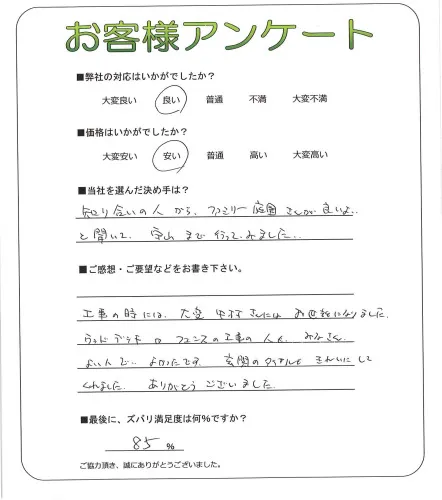 お客様アンケート
■弊社の対応はいかがでしたか？
大変良い 良い 普通 不満 大変不満
■価格はいかがでしたか？
大変安い 安い 普通 高い 大変高い
■当社を選んだ決め手は？
知り合いの人から、ファミリー庭園さんが良いよ、
と聞いて、守山まで行ってみました。
■ご感想・ご要望などをお書き下さい。
工事の時には、大変中村さんにはお世話になりました。
ウッドデッキやフェンスの工事の人も、みなさん
よい人で、よかったです。玄関のタイルもきれいにして
くれました。ありがとうございました。
■最後に、ズバリ満足度は何％ですか？
85 %
ご協力頂き、誠にありがとうございました。